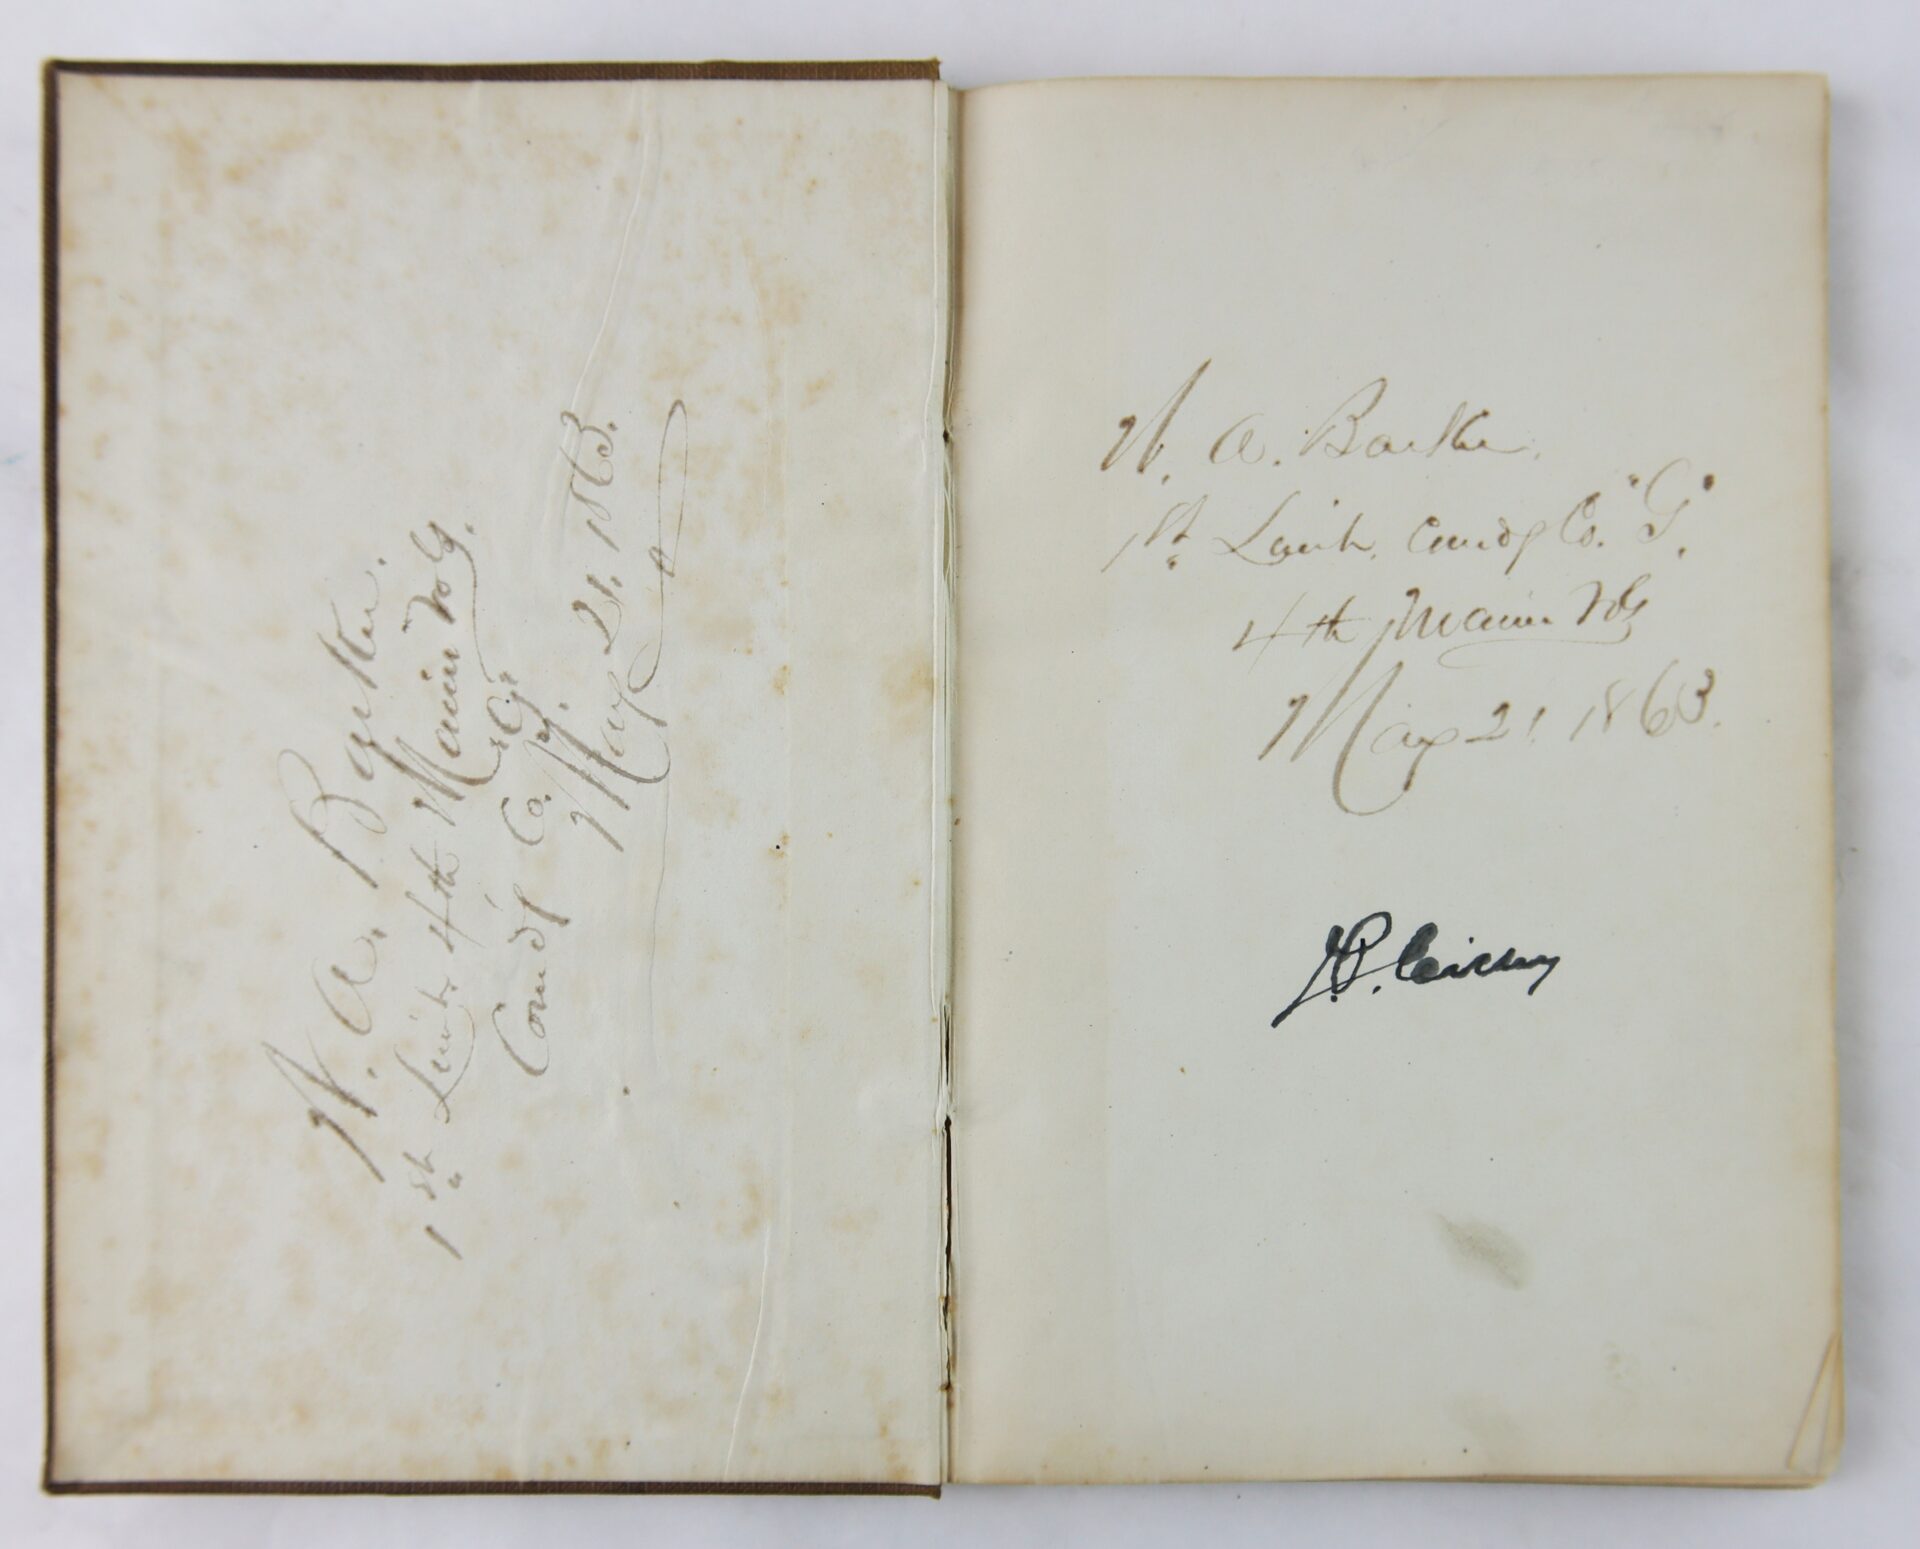 W. A. Barker.
1st Lieut. 4th Maine Vols.
Comdg Co. "G".
May 21. 1863.
W. A. Barker
1st Lieut. Comdg Co. "G".
4th Maine Vols
May 21. 1863.